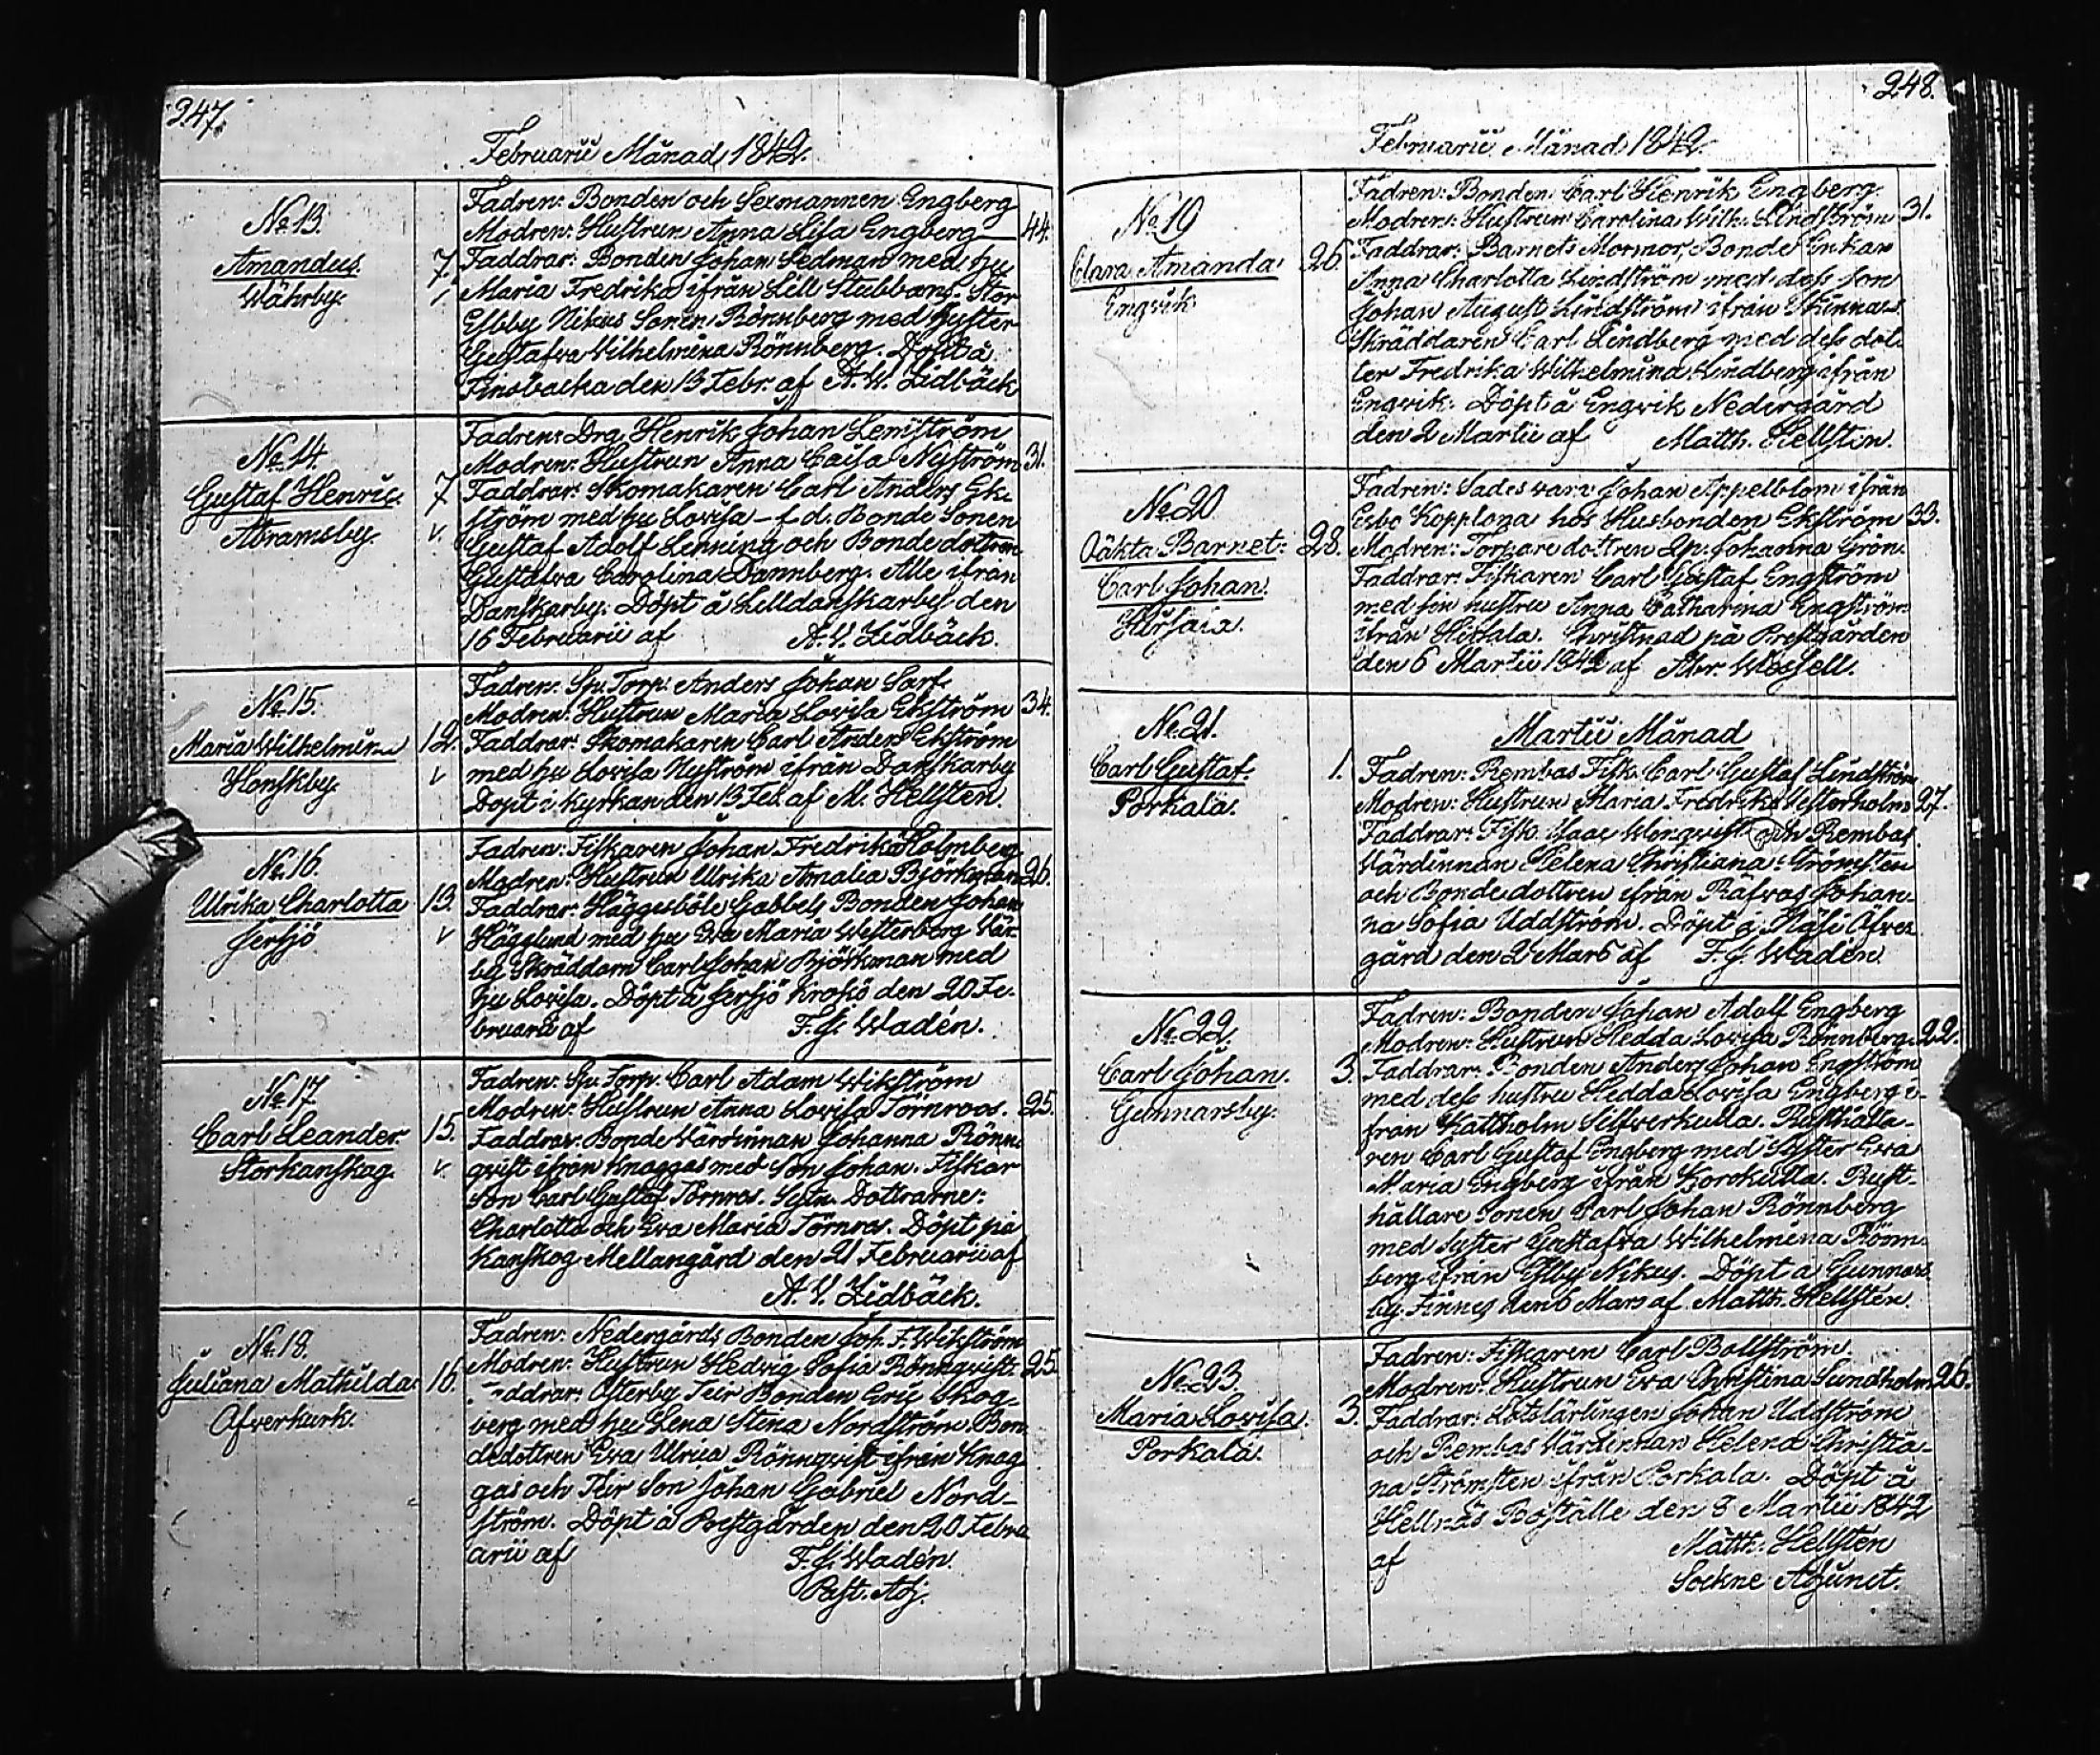 247.
Februarii Månad 1842.
No 13.
Amandus.
Wåhrby.
7.
v
Fadren: Bonden och Sexmannen Engberg
Modren: Hustrun Anna Lisa Engberg
44.
Faddrar: Bonden Johan Sedman med hu
Maria Fredrika ifrån Lill Stubbans. Stor
Esbby Nikus Sonen Rönnberg med syster
Gustafva Wilhelmina Rönnberg. Döpt å
Finsbacka den 13 Febr. af A. W. Lidbäck
No 14.
Gustaf Henric.
Abramsby.
7
v.
Fadren: Drg Henrik Johan Lemström
Modren: Hustrun Anna Caisa Nyström
31.
Faddrar: Skomakaren Carl Anders Ek-
ström med hu Lovisa - f.d. Bonde Sonen
Gustaf Adolf Lenning och Bondedottren
Gustafva Carolina Dannberg. Alle ifrån
Danskarby. Döpt å Lilldanskarby den
16 Februarii af A. V. Lidbäck.
No 15.
Maria Wilhelmina
Honskby.
12.
v
Fadren: Sp. Torp. Anders Johan Sarf.
Modren: Hustrun Maria Lovisa Ekström
34.
Faddrar: Skomakaren Carl Anders Ekström
med hu Lovisa Nyström ifrån Danskarby
Döpt i Kyrkan den 13 Feb. af M. Hellsten.
No 16.
Ulrika Charlotta
Jersjö
13.
v
Fadren: Fiskaren Johan Fredrik Holmberg
Modren: Hustrun Ulrika Amalia Björkman
26.
Faddrar: Häggesböle Gabbels Bonden Johan
Hägglund med hu Eva Maria Wetterberg Vår
by Skräddarn Carl Johan Björkman med
hu Lovisa. Döpt å Jersjö Krokö den 20 Fe-
bruarii af F. J. Wadén.
No 17
Carl Leander.
Storkanskog.
15.
v.
Fadren: Sp. Torp. Carl Adam Wikström
Modren: Hustrun Anna Lovisa Törnroos.
25.
Faddrar: Bonde Värdinnan Johanna Rönn-
qvist ifrån Knaggas med Son Johan. Fiskar
Son Carl Gustaf Törnros. Sytn. Dottrarne:
Charlotta och Eva Maria Törnros. Döpt på
Kanskog Mellangård den 21 Februarii af
A. V. Lidbäck.
No 18.
Juliana Mathilda
Öfverkurk.
16.
Fadren: Nedergårds Bonden Joh. F. Wikström
Modren: Hustrun Hedvig Sofia Rönnqvist.
25.
Faddrar: Österby Teir Bonden Eric Skog-
berg med hu Lena Stina Nordström. Bon
dedottren Eva Ulrica Rönnqvist ifrån Knag
gas och Teir Son Johan Gabriel Nord-
ström. Döpt å Prestgården den 20 Febru
arii af F. J. Wadén.
Past. Adj.
248.
Februarii Månad 1842.
No 19
Clara Amanda
Engvik
26.
Fadren: Bonden Carl Henrik Engberg.
Modren: Hustrun Carolina Wilh. Lindström
31.
Faddrar: Barnets Mormor, Bonde Enkan
Anna Charlotta Lindström med dess son
Johan August Lindström ifrån Skinnars
Skräddaren Carl Lindberg med dess dot-
ter Fredrika Wilhelmina Lindberg ifrån
Engvik. Döpt å Engvik Nedergård
den 2 Martii af Matth. Hellsten.
No 20
Oäkta Barnet:
Carl Johan.
28.
Fadren: Johan Appelblom ifrån
Esbo hos Husbonden Ekström
33.
Modren: Torparedottren Johanna Grön.
Faddrar: Fiskaren Carl Gustaf Engström
med sin hustru Anna Catharina Engström
ifrån Hirsala. Christnad på Prestgården
den 6 Martii 1842 af Abr. Wegell.
No 21.
Carl Gustaf.
Porkala.
1.
Martii Månad
Fadren: Rembas Fisk. Carl Gustaf Lindström
Modren: Hustrun Maria Fredrika Vesterholm
27.
Faddrar: Fisk. Isaac Wongvist och Rembas
Värdinnan Helena Christiana Strömsten
och Bondedottren ifrån Räfvas Johan-
na Sofia Uddström. Döpt å Näse Öfver
gård den 2 Mars af F. J. Wadén.
No 22.
Carl Johan.
Gunnarsby.
3.
Fadren: Bonden Johan Adolf Engberg
Modren: Hustrun Hedda Lovisa Rönnberg.
22.
Faddrar: Bonden Anders Johan Engström
med dess hustru Hedda Lovisa Engberg i-
från Kattholm Silfverkulla. Rusthålla-
ren Carl Gustaf Engberg med Syster Eva
Maria Engberg ifrån Korokulla. Rust-
hållare Sonen Carl Johan Rönnberg
med Syster Gustafva Wilhelmina Rönn-
berg ifrån Esby Nikus. Döpt å Gunnars
by Finnes den 6 Mars af Matth. Hellsten.
No 23.
Maria Lovisa.
Porkala.
3.
Fadren: Fiskaren Carl Bollström.
Modren: Hustrun Eva Christina Sundholm
26.
Faddrar: Lotslärlingen Johan Uddström
och Rembas Värdinnan Helena Christia-
na Strömsten ifrån Porkala. Döpt å
Hellnäs Boställe den 8 Martii 1842
af Matth. Hellsten
Sockne Adjunct.